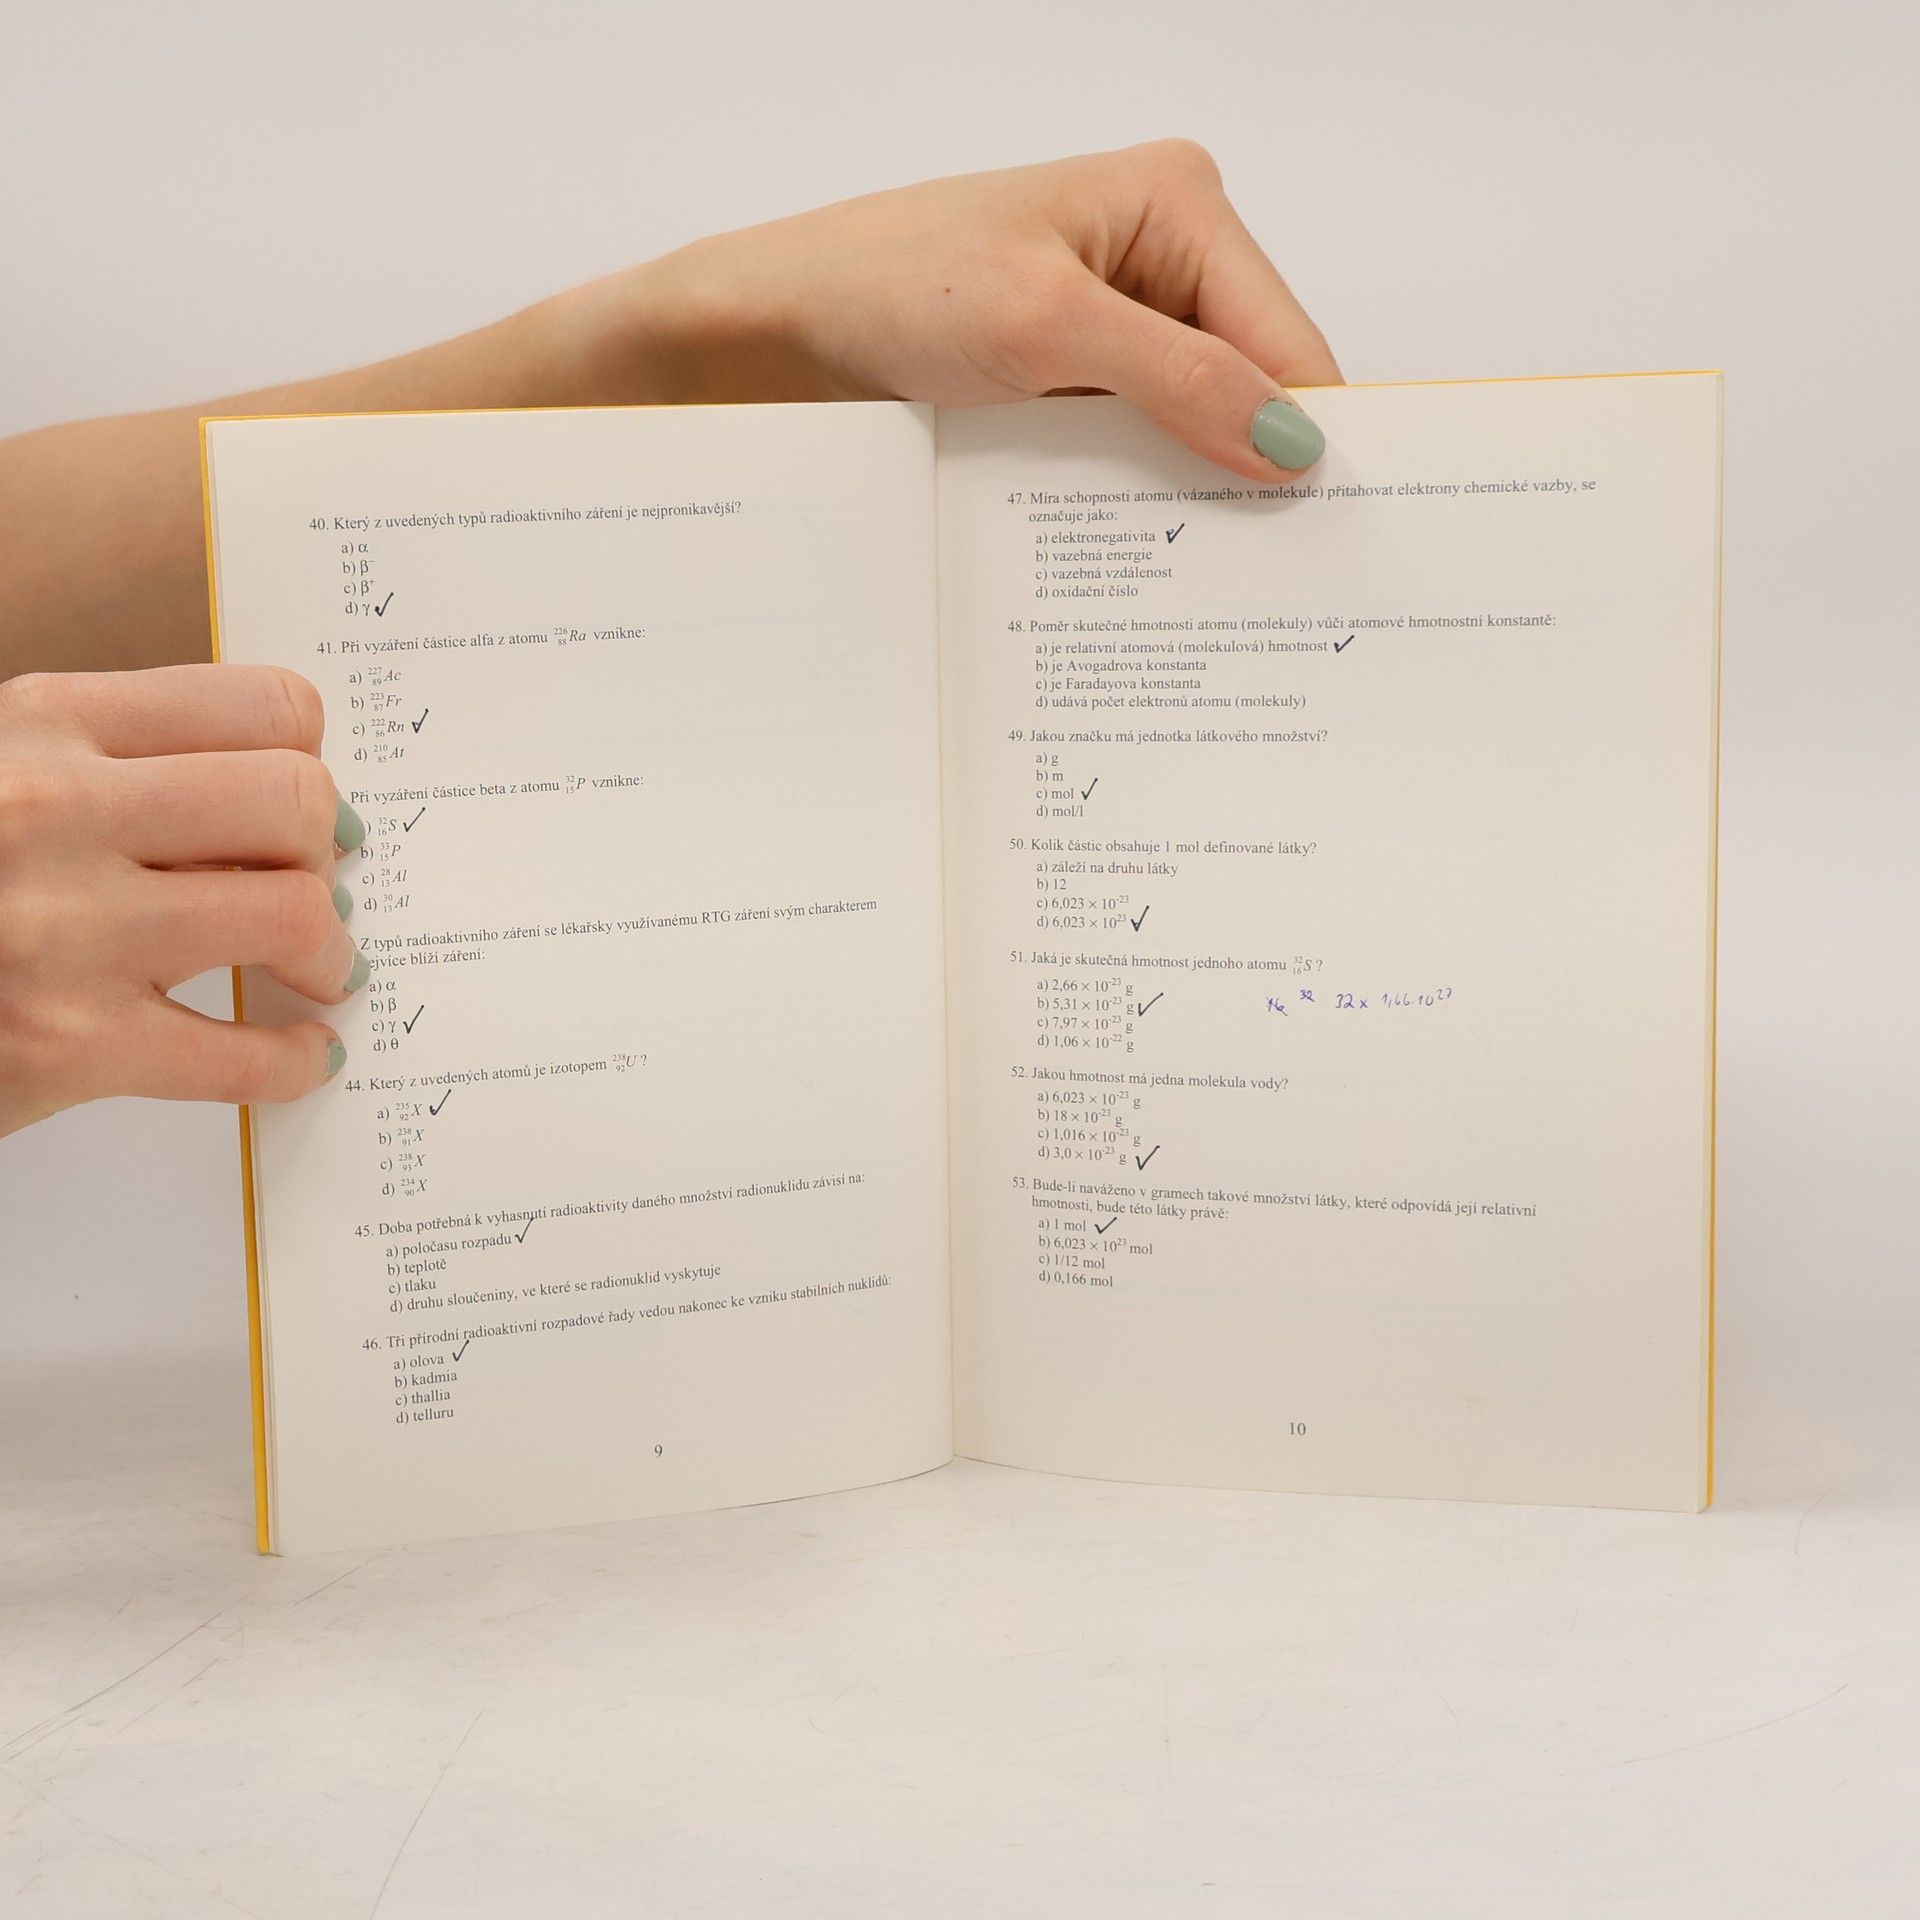 40. Který z uvedených typů radioaktivního záření je nejpronikavější?
a) α
b) β⁻
c) β⁺
d) γ ✓
41. Při vyzáření částice alfa z atomu ²²⁶₈₈Ra vznikne:
a) ²²⁷₈₉Ac
b) ²²³₈₇Fr
c) ²²²₈₆Rn ✓
d) ²¹⁰₈₅At
Při vyzáření částice beta z atomu ³²₁₅P vznikne:
) ³²₁₆S ✓
b) ³³₁₅P
c) ²⁸₁₃Al
d) ³⁰₁₃Al
Z typů radioaktivního záření se lékařsky využívanému RTG záření svým charakterem
ejvíce blíží záření:
a) α
b) β
c) γ ✓
d) θ
44. Který z uvedených atomů je izotopem ²³⁸₉₂U ?
a) ²³⁵₉₂X ✓
b) ²³⁸₉₁X
c) ²³⁸₉₃X
d) ²³⁴₉₀X
45. Doba potřebná k vyhasnutí radioaktivity daného množství radionuklidu závisí na:
a) poločasu rozpadu ✓
b) teplotě
c) tlaku
d) druhu sloučeniny, ve které se radionuklid vyskytuje
46. Tři přírodní radioaktivní rozpadové řady vedou nakonec ke vzniku stabilních nuklidů:
a) olova ✓
b) kadmia
c) thallia
d) telluru
9
47. Míra schopnosti atomu (vázaného v molekule) přitahovat elektrony chemické vazby, se
označuje jako:
a) elektronegativita ✓
b) vazebná energie
c) vazebná vzdálenost
d) oxidační číslo
48. Poměr skutečné hmotnosti atomu (molekuly) vůči atomové hmotnostní konstantě:
a) je relativní atomová (molekulová) hmotnost ✓
b) je Avogadrova konstanta
c) je Faradayova konstanta
d) udává počet elektronů atomu (molekuly)
49. Jakou značku má jednotka látkového množství?
a) g
b) m
c) mol ✓
d) mol/l
50. Kolik částic obsahuje 1 mol definované látky?
a) záleží na druhu látky
b) 12
c) 6,023 × 10⁻²³
d) 6,023 × 10²³ ✓
51. Jaká je skutečná hmotnost jednoho atomu ³²₁₆S ?
a) 2,66 × 10⁻²³ g
b) 5,31 × 10⁻²³ g ✓ 32 32 x 1,66.10²⁷
c) 7,97 × 10⁻²³ g
d) 1,06 × 10⁻²² g
52. Jakou hmotnost má jedna molekula vody?
a) 6,023 × 10⁻²³ g
b) 18 × 10⁻²³ g
c) 1,016 × 10⁻²³ g
d) 3,0 × 10⁻²³ g ✓
53. Bude-li naváženo v gramech takové množství látky, které odpovídá její relativní
hmotnosti, bude této látky právě:
a) 1 mol ✓
b) 6,023 × 10²³ mol
c) 1/12 mol
d) 0,166 mol
10